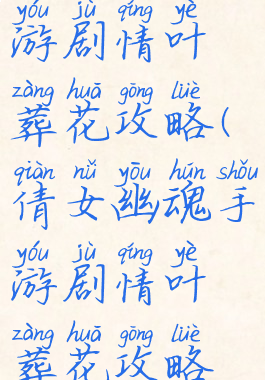 yóu jù qíng yè
游剧情叶
zàng huā gōng lüè
葬花攻略(
qiàn nǚ yōu hún shǒu
倩女幽魂手
yóu jù qíng yè
游剧情叶
zàng huā gōng lüè
葬花攻略